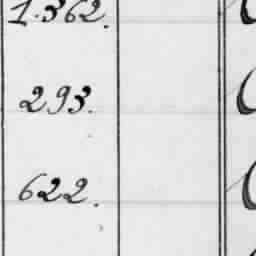 1.362.
293.
622.